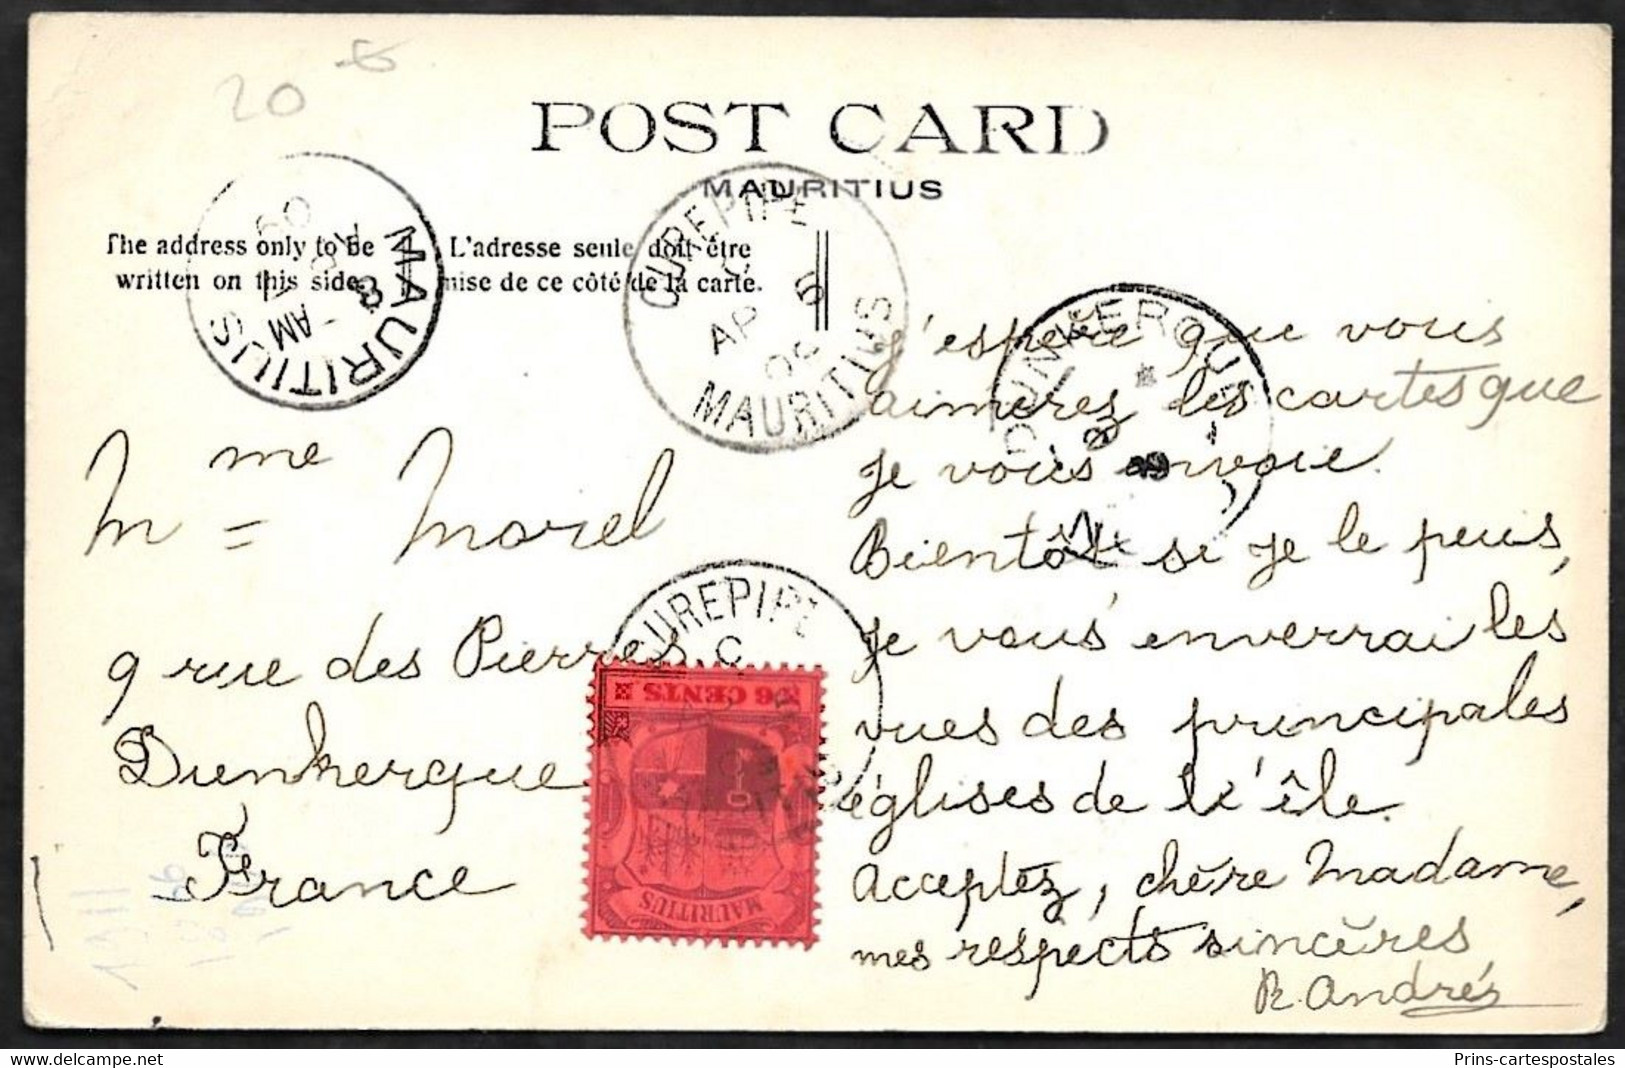 20
POST CARD
MAURITIUS
The address only to be
written on this side.
L'adresse seule doit être
mise de ce côté de la carte.
MAURITIUS
AM
8
CUREPIPE
AP 5
09
MAURITIUS
DUNKERQUE
J'espère que vous
aimerez les cartes que
je vous envoie.
Bientôt si je le puis,
je vous enverrai les
vues des principales
églises de l'île.
Acceptez, chère Madame,
mes respects sincères
R. Andrés
Mme Morel
9 rue des Pierres
Dunkerque
France
CUREPIPE
C
6 CENTS
MAURITIUS
1911
Prins-cartespostales